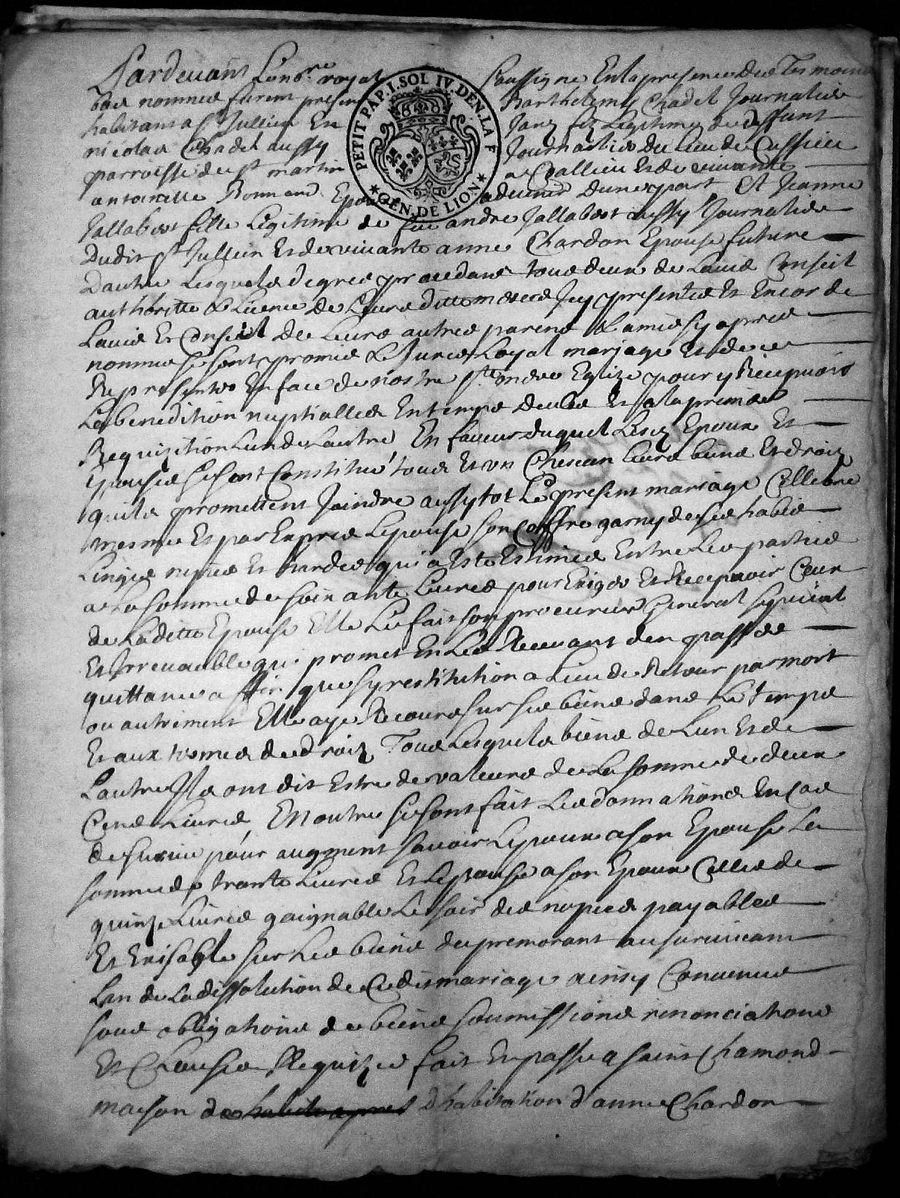 Pardevant Le no.re royal soussigné Et la presence des tesmoins
bas nommes furent presens Barthelemy Chadel Journalier
habitant a St Jullien En Jaretz fils Legitime de deffunt
nicolas Chadel aussy Journalier du Lieu de Cussieu
parroisse de st martin a Coallieu Et de vivante
antoinette Bonnand Epoux advenir Dune part Et Jeanne
Jallabert fille Legitime de andre Jallabert aussy Journalier
Dudit st Jullien Et de vivante anne Chardon Epouse future
Dautre Lesquels de gre procedans tous deux de Lavis Conseil
authoritte & Licence de Leurs dittes meres Icy presentes Et Encor de
Lavis Et Conseil de Leurs autres parens & amis sy apres
nommes se sont promis & Jures Loyal mariage Et de se
Representer En face de nostre ste mere Eglize pour y Recepvoir
La benediction nuptialle En temps deub Et a la premiere
Requisition Lun de Lautre En faveur duquel Lesd Epoux Et
Epouse se sont Constitue tous Et un Chescun Leurs biens Et droitz
quils promettent Joindre aussytot Le present mariage Cellebre
mesmes Et par Expres Lepouse son Coffre garny de ses habis
Linges nipes Et hardes qui a Este Estimes Entre Les parties
a La somme de soixante Livres pour Exiger Et Recepvoir Ceux
de Laditte Epouse Elle Le fait son procureur General special
Et Irrevocable qui promet En Les Recevant den passer
quittance affin que sy restitution a Lieu de Retour par mort
ou autrement Elle aye Recours sur ses biens dans Le temps
Et aux termes de droitz Tous Lesquels biens de Lun Et de
Lautre Ils ont dit Estre de valeurs de La somme de deux
Cens Livres Et outre se sont fait Les donnations En Cas
de survie pour augment savoir Lepoux a son Epouse La
somme de trante Livres Et Lepouse a son Epoux Celles de
quinze Livres gaignable Le soir des nopces payables
Et Exigble sur Les biens du premorant au survivant
Lan de La dissolution de Cedit mariage ainsy Convenus
sous obligations de biens soumissions rinonciations
Et Clauses Requizes fait Et passe a saint Chamond
maison d'habitation d'anne Chardon
PETIT PAP. I. SOL IV. DEN. LA F
GEN. DE LION